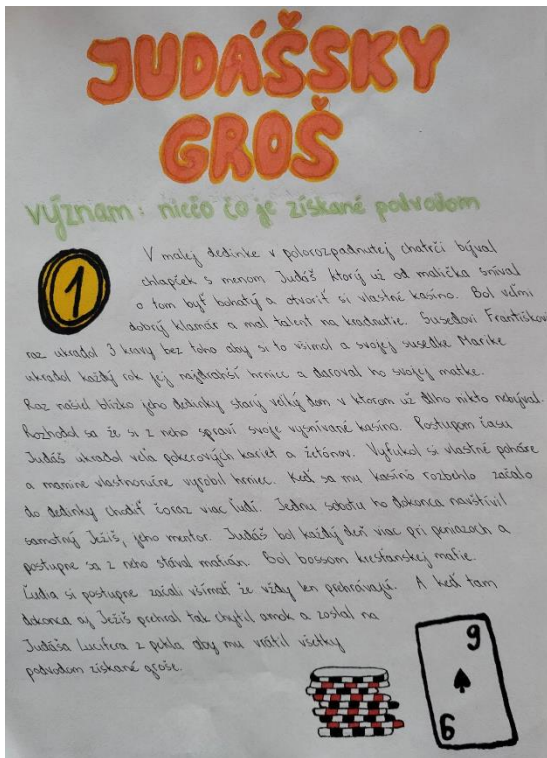 JUDÁŠSKY
GROŠ
význam: niečo čo je získané podvodom
1
V malej dedinke v polorozpadnutej chatrči býval
chlapček s menom Judáš ktorý už od malička sníval
o tom byť bohatý a otvoriť si vlastné kasíno. Bol veľmi
dobrý klamár a mal talent na kradnutie. Susedovi Františkovi
raz ukradol 3 kravy bez toho aby si to všimol a svojej susedke Marike
ukradol každý rok jej najdrahší hrniec a daroval ho svojej matke.
Raz našiel blízko jeho dedinky starý veľký dom v ktorom už dlho nikto nebýval.
Rozhodol sa že si z neho spraví svoje vysnívané kasíno. Postupom času
Judáš ukradol veľa pokerových kariet a žetónov. Vyfúkol si vlastné poháre
a mamine vlastnoručne vyrobil hrniec. Keď sa mu kasíno rozbehlo začalo
do dedinky chodiť čoraz viac ľudí. Jednu sobotu ho dokonca navštívil
samotný Ježiš, jeho mentor. Judáš bol každý deň viac pri peniazoch a
postupne sa z neho stával mafián. Bol bossom kresťanskej mafie.
Ľudia si postupne začali všímať že vždy len prehrávajú. A keď tam
dokonca aj Ježiš prehral tak chytil amok a zoslal na
Judáša Lucifera z pekla aby mu vrátil všetky
podvodom získané groše.
9
9